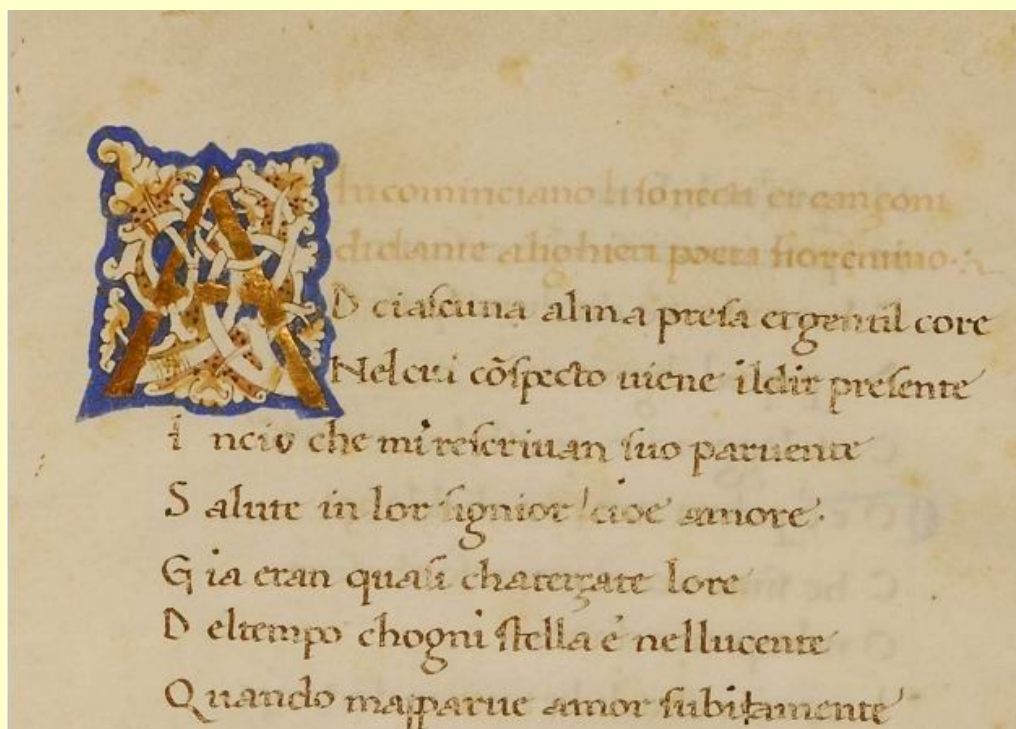 Incominciano li sonecti et cançoni
di dante alighieri poeta fiorentino
AD ciascuna alma presa et gentil core
Nel cui cõspecto uiene il dir presente
In cio che mi rescriuan suo paruente
Salute in lor signior cioe amore.
Gia eran quasi chaterzate lore
Del tempo chogni stella e nel lucente
Quando mapparue amor subitamente